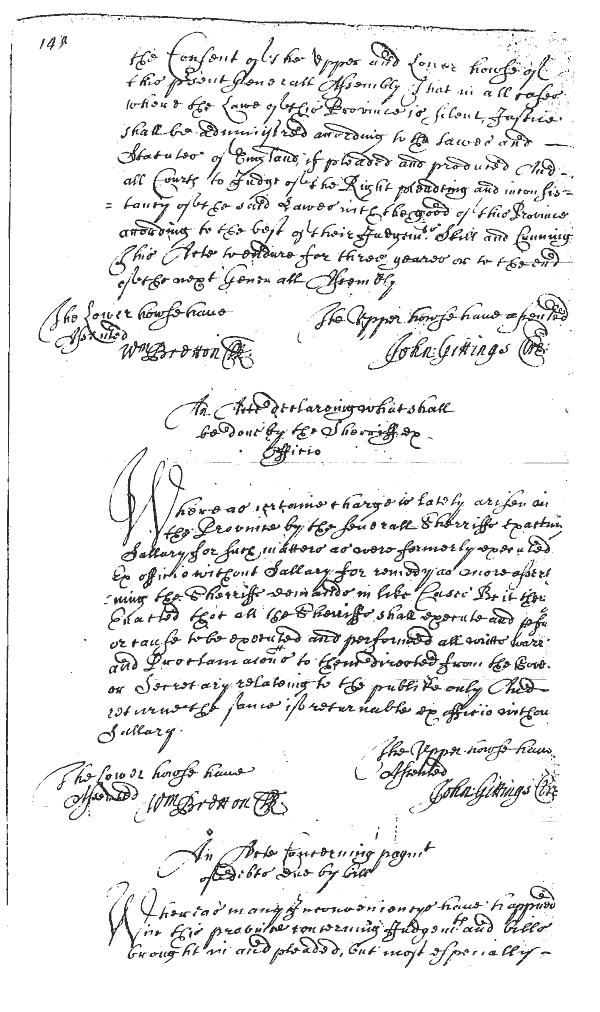 the Consent of the Upper and Lower howse of
this present Generall Assembly That in all cases
where the Lawe of this Province is silent, Justice
shall be administred according to the Lawes and
Statutes of England, if pleaded and produced And
all Courts to Judge of the Right pleading and inconsis-
=tancy of the said Lawes with the good of this Province
according to the best of their Judgemts Skill and Cunning
This Acte to endure for three yeares or to the end
of the next Generall Assembly
The Lower howse have
Assented
Wm Bretton Clk:
The Upper howse have assented
John Gittings Clre:
An Acte declareing what shall
be done by the Sherriff ex
Officio
Whereas certaine charge is lately arisen in
the Province by the severall Sherriffs exacting
Sallary for such matters as were formerly executed
Ex officio without Sallary for remedy as more ascert
ning the Sherriffs demands in like Cases Be it ther
Enacted that all the Sherriffs shall execute and pfor
or cause to be executed and performed all writts warr
and Proclamations to them directed from the Gov
or Secretary relateing to the publike only And
returne the same if returnable ex officio withou
Sallary.
The Lower howse have
Assented Wm Bretton Clk
The Upper howse have
Assented
John Gittings Clre
An Acte Concerning paymt
of debts due by bill
Whereas many Inconveniencyes have happned
in this province concerning Judgemt and bills
brought in and pleaded, but most especially